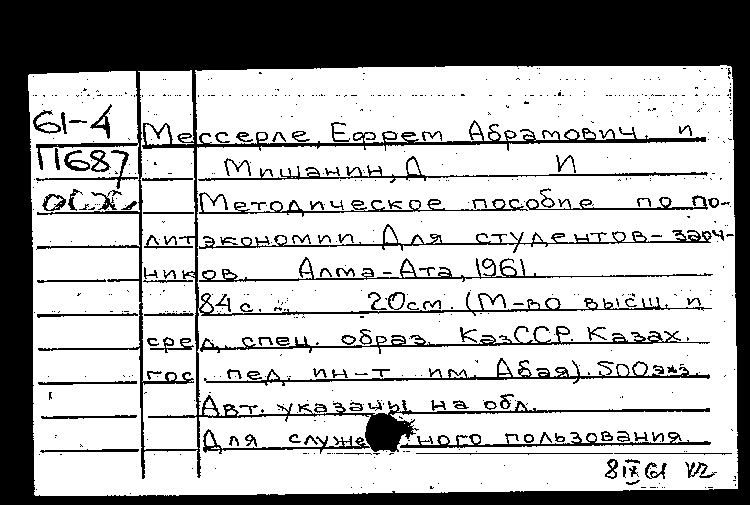 61-4
П687
Мессерле, Ефрем Абрамович. и
Мишанин, Д И
Методическое пособие по по-
литэкономии. Для студентов-заоч-
ников. Алма-Ата, 1961.
84 с. 20см. (М-во высш. и
сред. спец. образ. КазССР. Казах.
гос. пед. ин-т им. Абая). 500экз.
Авт. указаны на обл.
Для служе ного пользования.
8 IX 61